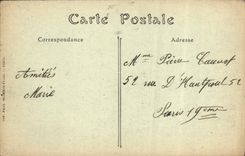 Carte Postale
Correspondance
Adresse
Mme Pierre
52 rue D'Hautpoul 52
Paris 19eme
Amitiés
Marie